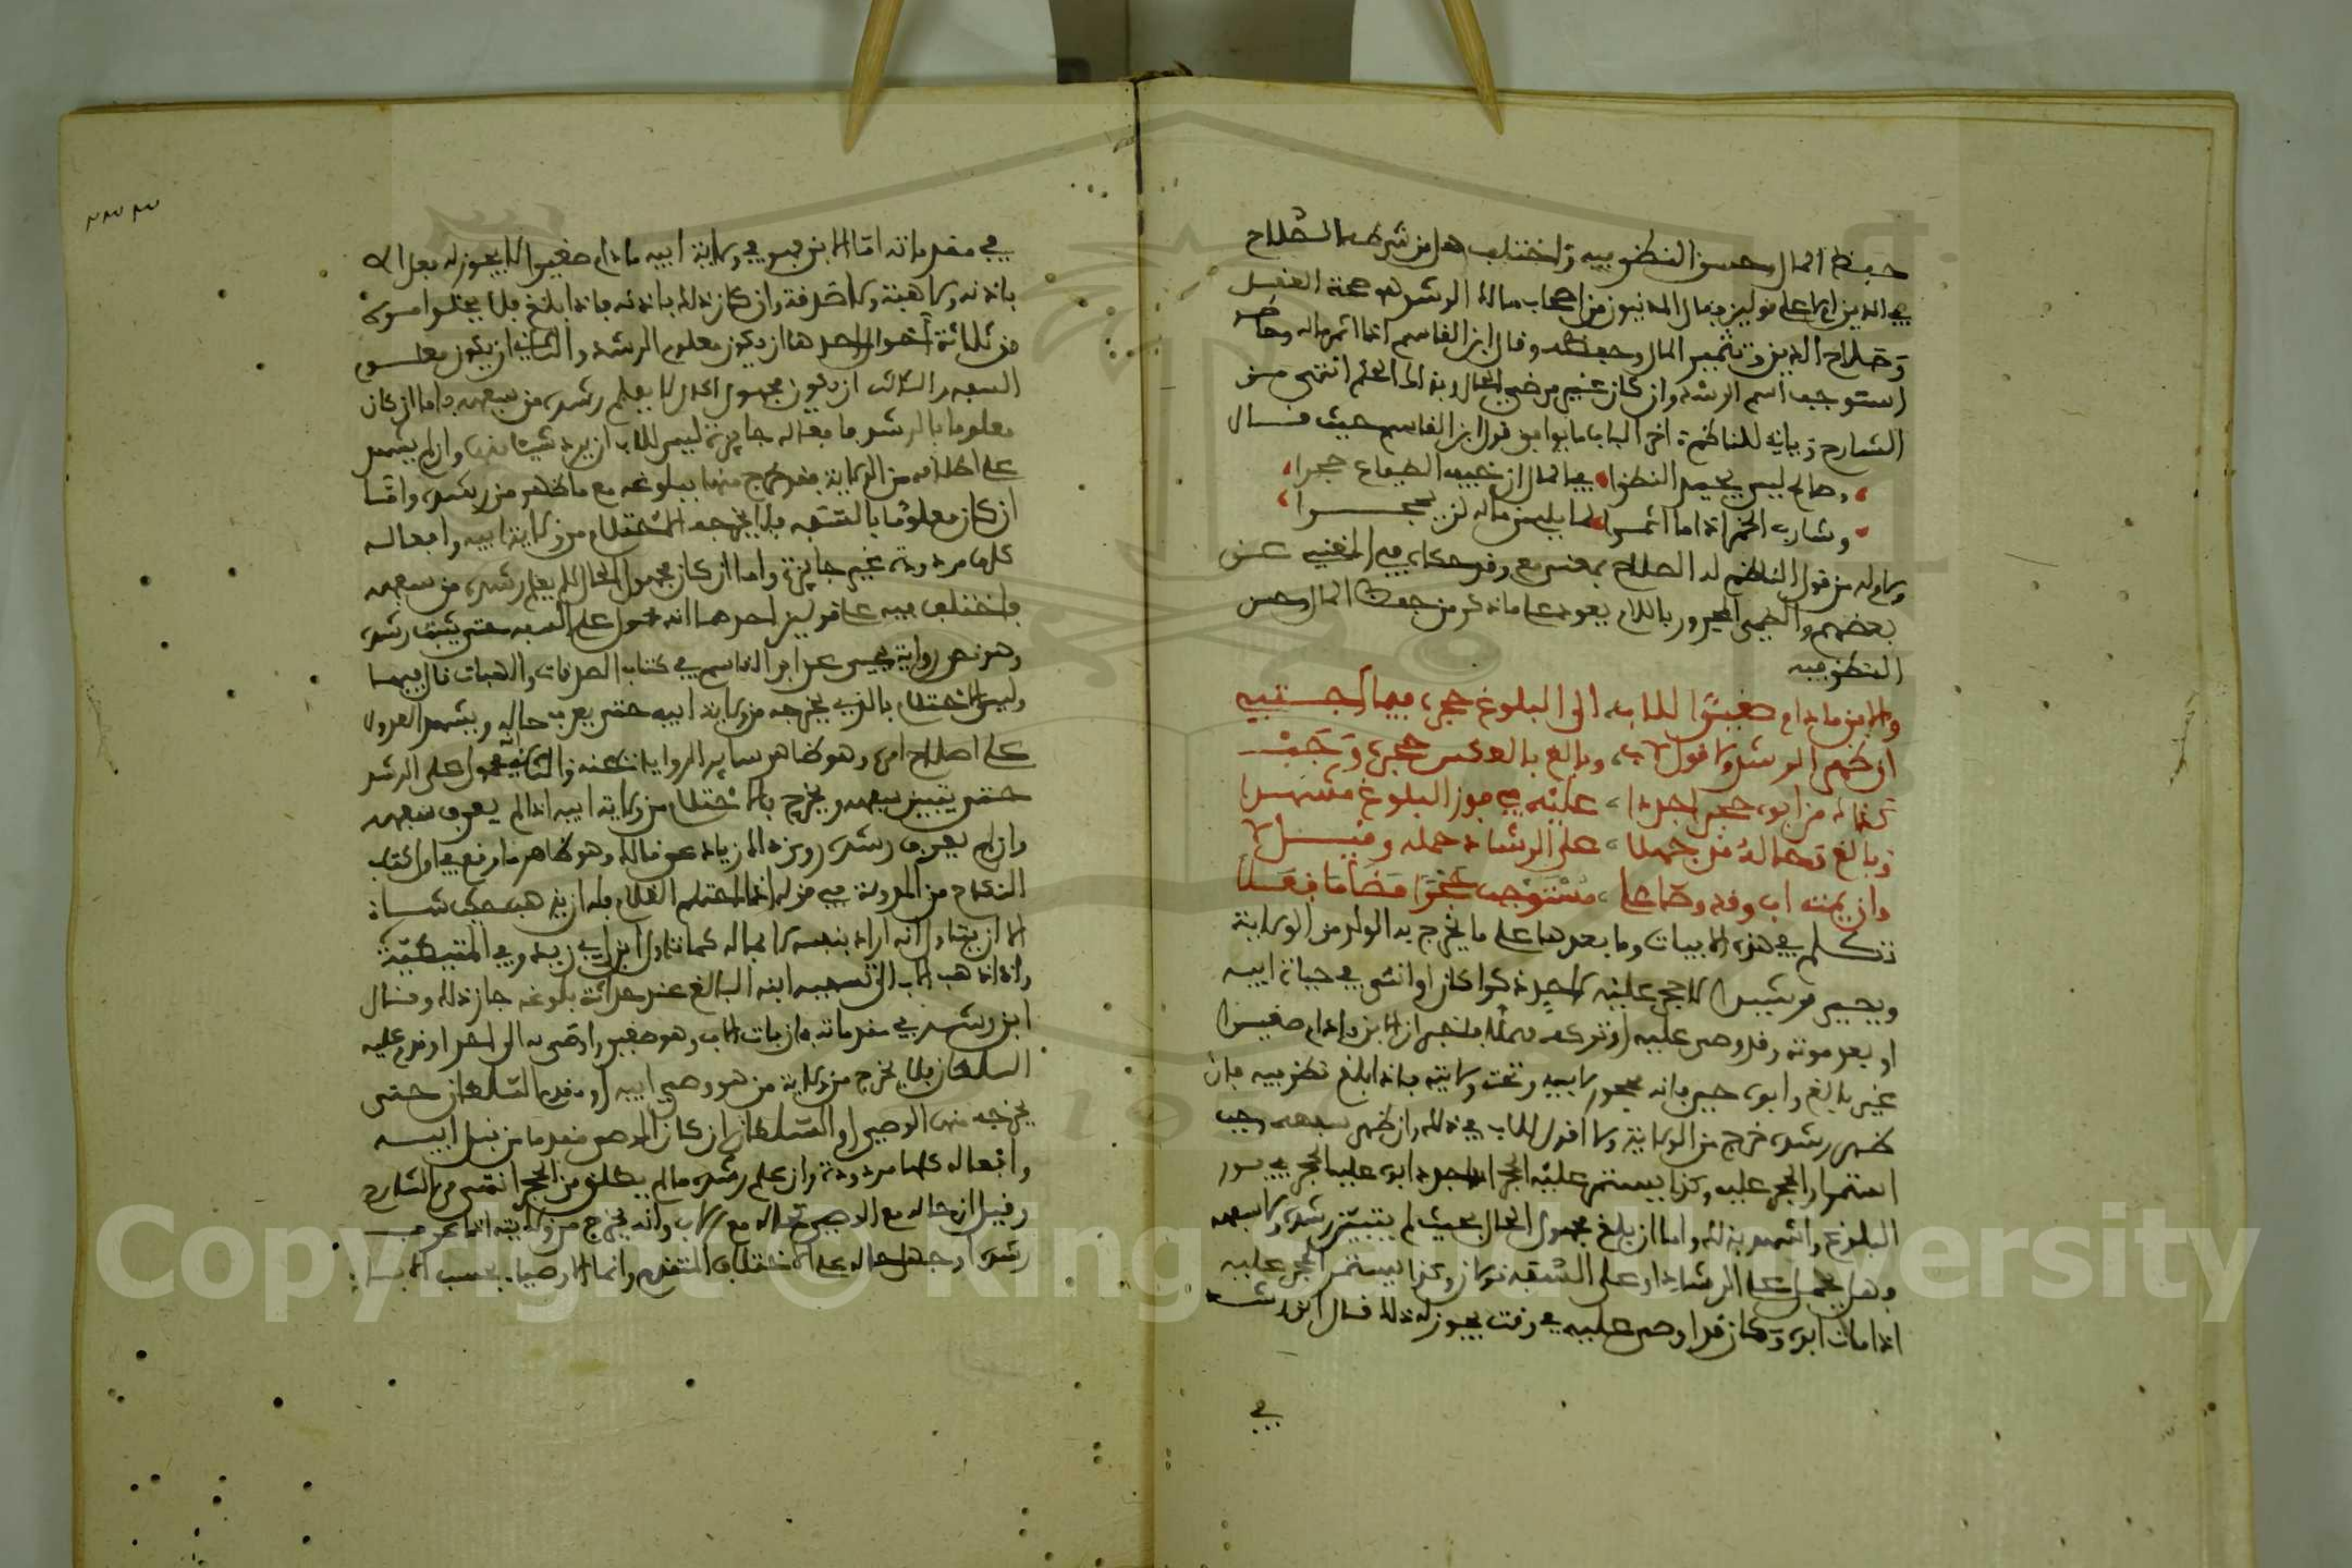 حفظ المال وحسن النظر فيه واختلف هل من شرطه الصلاح
في الدين ام لا على قولين فقال المدنيون من اصحاب مالك الرشد هو صحة العقل
وصلاح الدين وتثمير المال وحفظه وقال ابن القاسم اذا اثمر ماله وحاطه
استوجب اسم الرشد وان كان غير مرضي الحال وبذلك الحكم انتهى من
الشارح وياتي للناظم اخر الباب ما يوافق قول ابن القاسم حيث قال
وصالح ليس يجيد النظرا في المال ان خيف الضياع حجرا
وشارب الخمر اذا ما اثمرا لما يلي من ماله لن يحجرا
بعضهم والضمير المجرور باللام يعود على ما ذكر من حفظ المال وحسن
النظر فيه
والابن ما دام صغيرا للاب الى البلوغ حجره فيما اجتبي
ان ظهر الرشد ولا قول لاب وبالغ بالعكس حجره وجب
كذاك من ابوه حجرا جددا عليه في فور البلوغ مشهدا
وبالغ وحاله قد جهلا على الرشاد حمله وقيل لا
وان يمت اب وقد وصى على مستوجب حجرا مضى ما فعلا
تكلم في هذه الابيات وما بعدها على ما يخرج به الولد من الولاية
ويصير رشيدا لا حجر عليه لاحد ذكرا كان او انثى في حياة ابيه
او بعد موته وقد وصى عليه او تركه مهملا فاخبر ان الابن ما دام صغيرا
غير بالغ وابوه حي فانه في حجر ابيه وتحت ولايته فاذا بلغ نظر فيه فان
ظهر رشده خرج من الولاية ولا قول للاب في ذلك وان ظهر سفهه وجب
استمرار الحجر عليه وكذا يستمر عليه الحجر اذا جدد ابوه عليه الحجر في فور
البلوغ واشهد بذلك واما ان بلغ مجهول الحال بحيث لم يتبين رشده ولا سفهه
وهل يحمل على الرشاد او على السفه قولان وكذا يستمر الحجر عليه
اذا مات ابوه وكان قد اوصى عليه في وقت يجوز له ذلك قال ابن رشد
في
في مقدماته اما الابن فهو في ولاية ابيه ما دام صغيرا لا يجوز له فعل الا
باذنه ولا هبة ولا صدقة وان كان ذلك باذنه فاذا بلغ فلا يخلوا امره
من ثلاثة احوال احدها ان يكون معلوم الرشد والثاني ان يكون معلوم
السفه والثالث ان يكون مجهول الحال لا يعلم رشده من سفهه فاما ان كان
معلوما بالرشد فافعاله جايزة ليس للاب ان يرد شيئا منها وان لم يشهد
على اطلاقه من الولاية فقد خرج منها ببلوغه مع ما ظهر من رشده واما
ان كان معلوما بالسفه فلا يخرجه الاحتلام من ولاية ابيه وافعاله
كلها مردودة غير جايزة واما ان كان مجهول الحال لا يعلم رشده من سفهه
فاختلف فيه على قولين احدهما انه محمول على السفه حتى يثبت رشده
وهو نص رواية يحيى عن ابن القاسم في كتاب الصدقات والهبات قال فيها
وليس الاحتلام بالذي يخرجه من ولاية ابيه حتى يعرف حاله ويشهد العدول
على اصلاح امره وهو ظاهر ساير الروايات عنه والثاني انه محمول على الرشد
حتى يتبين سفهه ويخرج بالاحتلام من ولاية ابيه اذا لم يعرف سفهه
وان لم يعرف رشده روى ذلك زياد عن مالك وهو ظاهر ما وقع في اول كتاب
النكاح من المدونة من قوله اذا احتلم الغلام فله ان يذهب حيث شاء
الا ان يتاول انه اراد بنفسه لا بماله كما تاول ابن ابي زيد وفي المتيطية
واذا ذهب الاب الى تسفيه ابنه البالغ عند حداثة بلوغه جاز ذلك وقال
ابن رشد في مقدماته فان مات الاب وهو صغير واوصى به الى احد او قدم عليه
السلطان فلا يخرج من ولاية من هو وصي ابيه او مقدم السلطان حتى
يخرجه منها الوصي او السلطان ان كان الوصي مقدما من قبل ابيه
وافعاله كلها مردودة وان علم رشده ما لم يطلق من الحجر انتهى من الشارح
وقيل ان حاله مع الوصي كحاله مع الاب وانه يخرج من ولايته اذا عرف
رشده او جهل حاله على الاختلاف المتقدم
Copyright © King Saud University